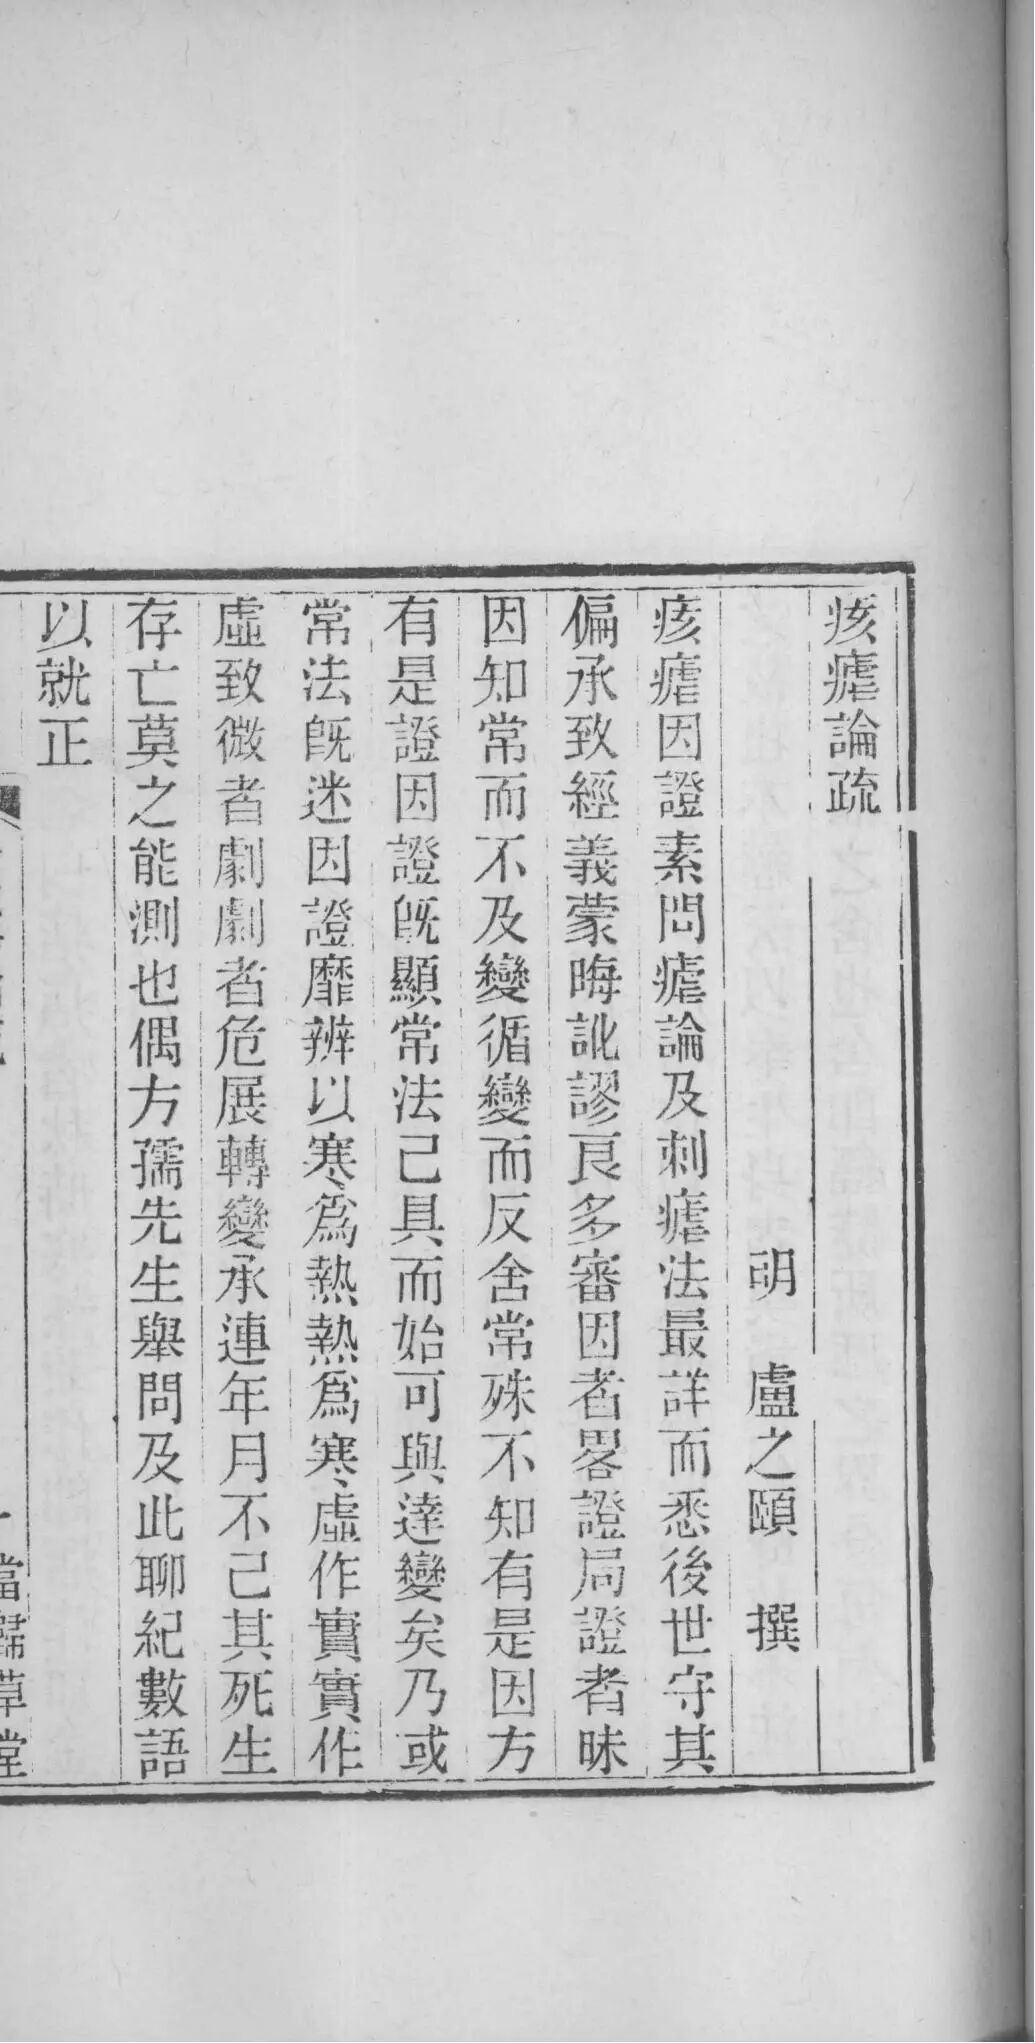 痎瘧論疏
明　盧之頤　撰
痎瘧因證素問瘧論及刺瘧法最詳而悉後世守其
偏承致經義蒙晦訛謬良多審因者畧證局證者昧
因知常而不及變循變而反舍常殊不知有是因方
有是證因證旣顯常法已具而始可與達變矣乃或
常法旣迷因證靡辨以寒爲熱熱爲寒虛作實實作
虛致微者劇劇者危展轉變承連年月不已其死生
存亡莫之能測也偶方孺先生舉問及此聊紀數語
以就正
一　當歸草堂